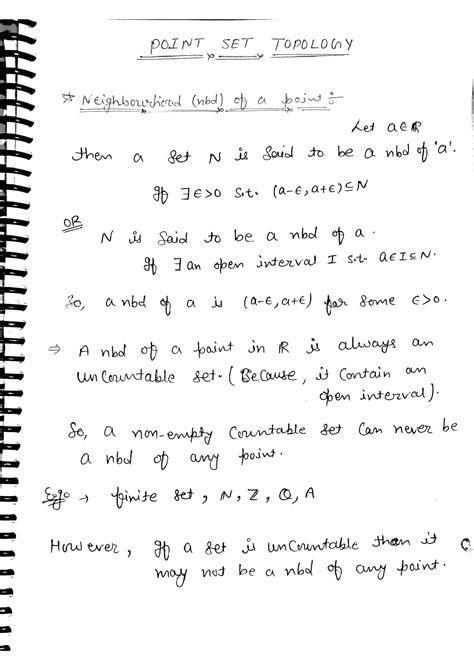 POINT SET TOPOLOGY
* Neighbourhood (nbd) of a point :-
Let a∈ℝ
then a set N is said to be a nbd of 'a'.
If ∃ ϵ>0 s.t. (a-ϵ, a+ϵ) ⊆ N
OR
N is said to be a nbd of a.
If ∃ an open interval I s.t. a∈I⊆N.
So, a nbd of a is (a-ϵ, a+ϵ) for some ϵ>0.
⇒ A nbd of a point in ℝ is always an
uncountable set. (Because, it contain an
open interval).
So, a non-empty countable set can never be
a nbd of any point.
E.g. → finite set, ℕ, ℤ, ℚ, A
However, If a set is uncountable then it
may not be a nbd of any point.